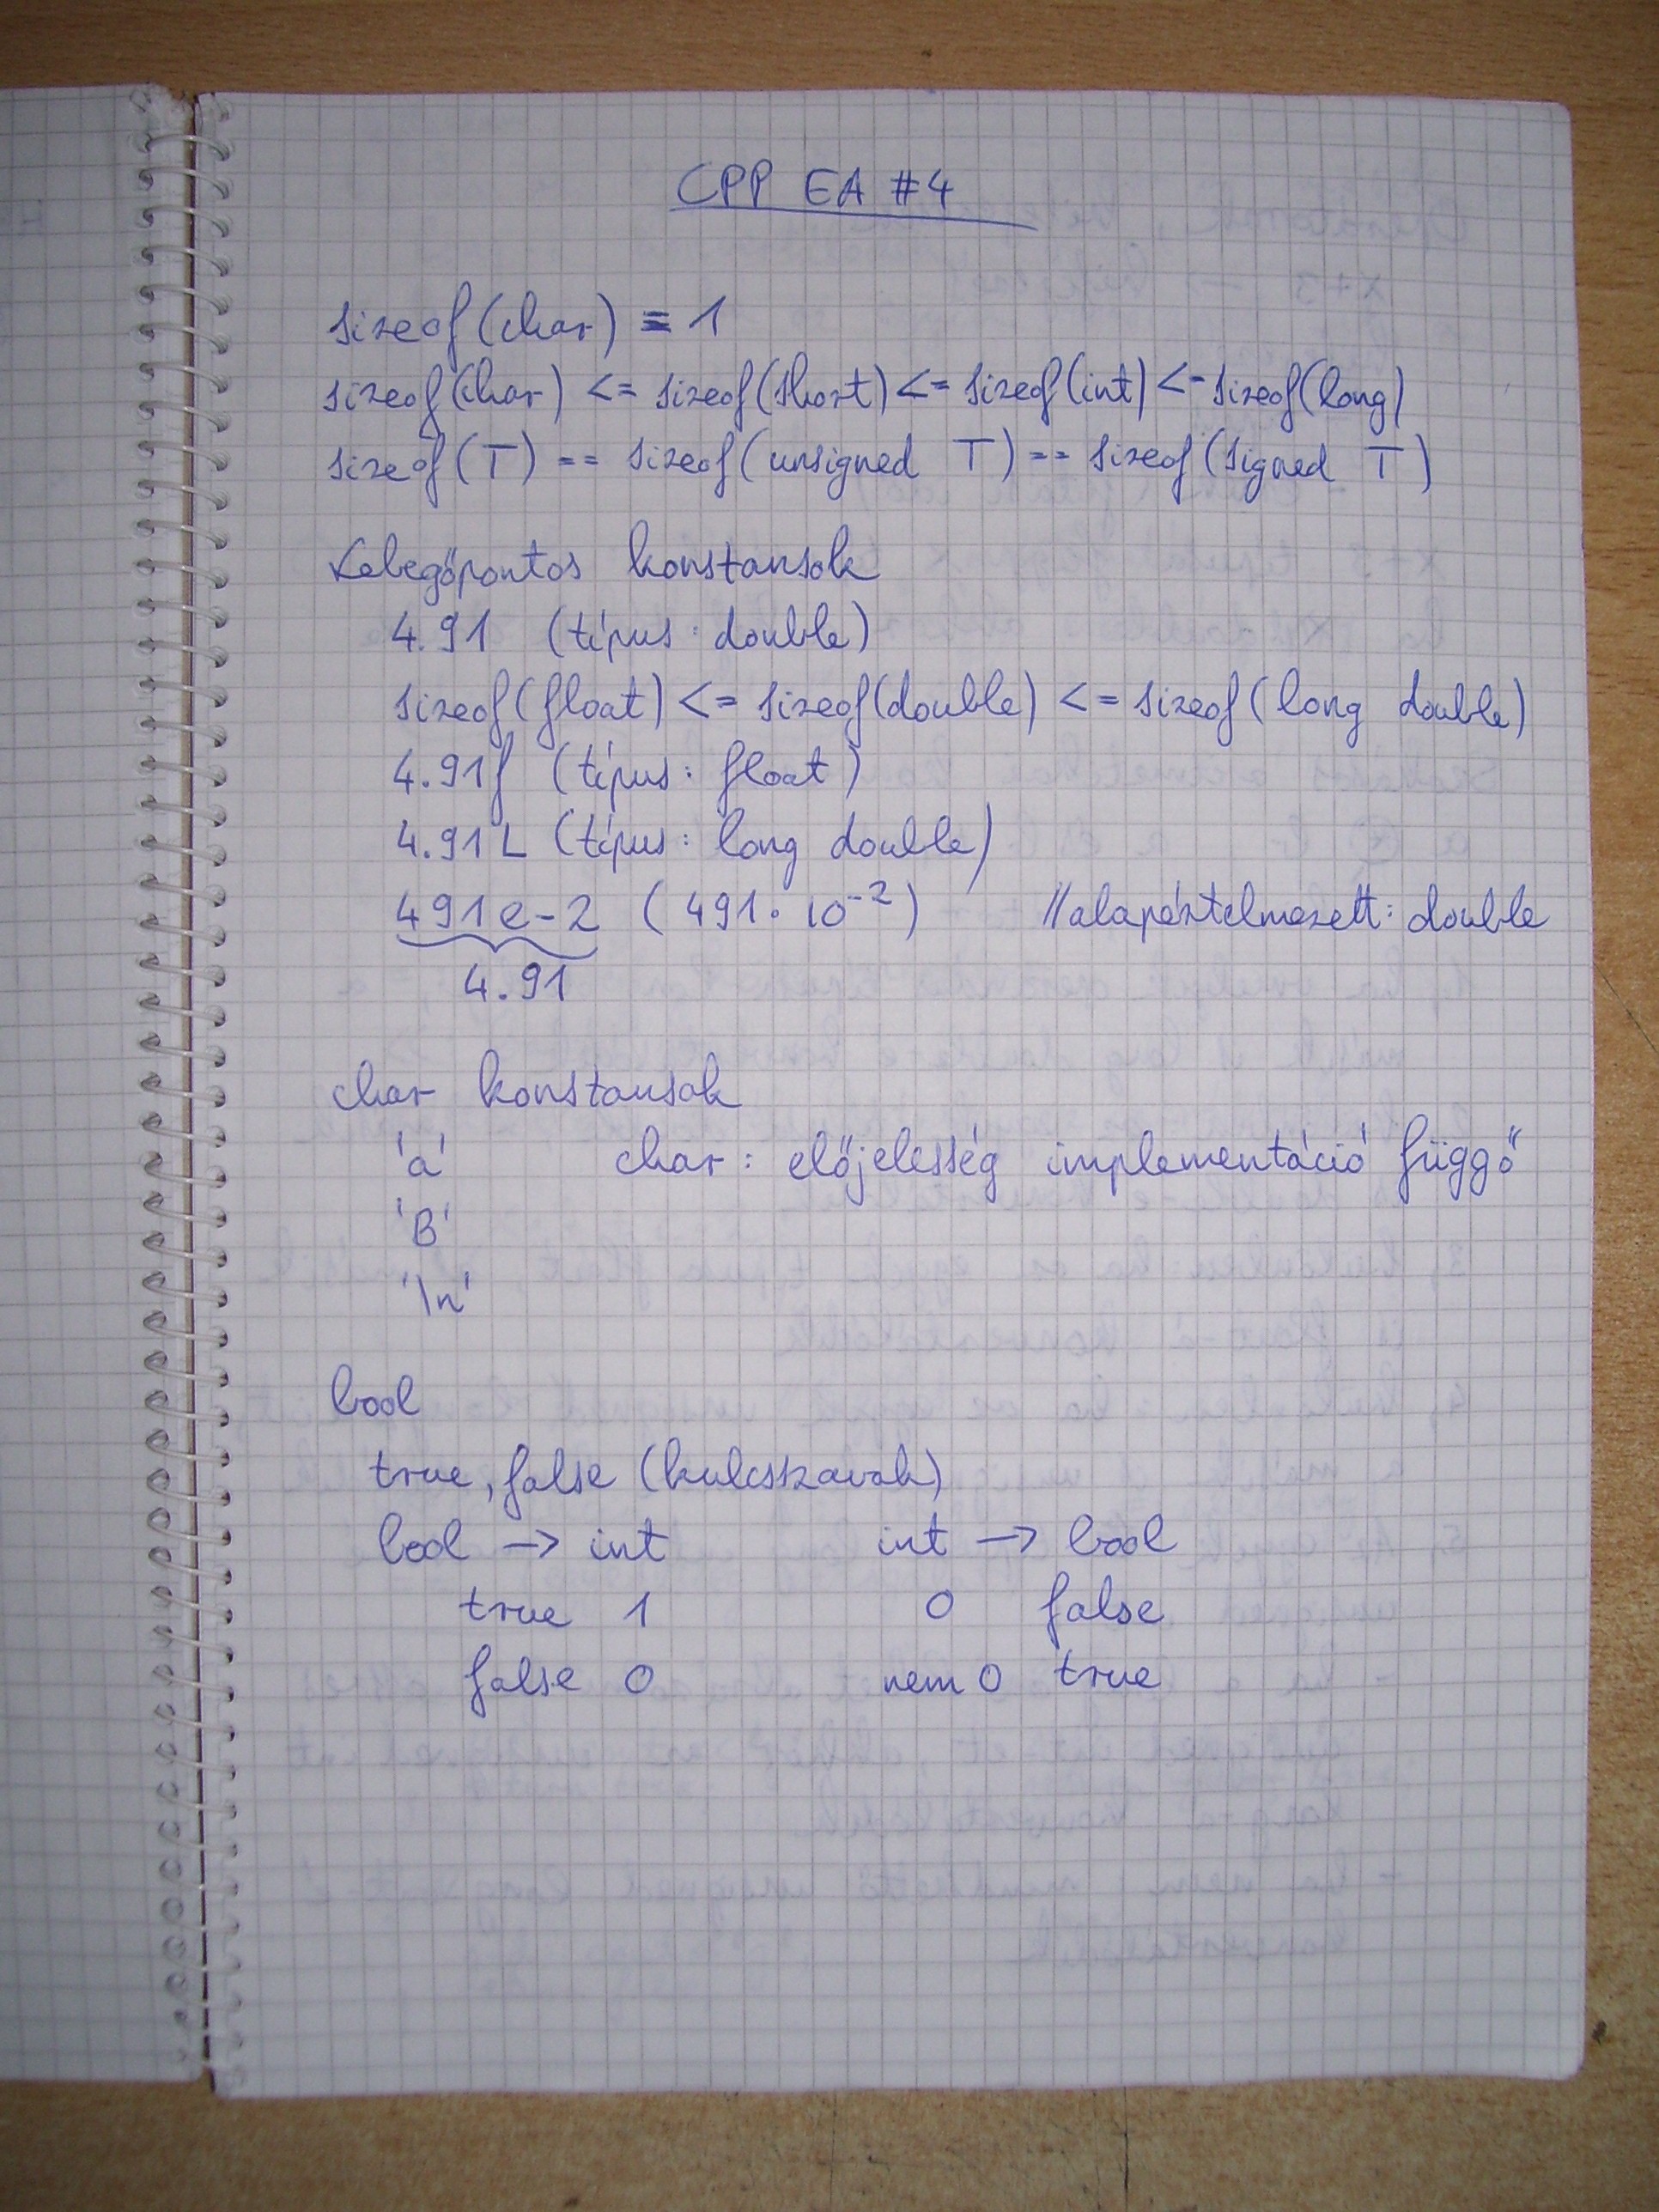 CPP EA #4
sizeof(char) = 1
sizeof(char) <= sizeof(short) <= sizeof(int) <= sizeof(long)
sizeof(T) == sizeof(unsigned T) == sizeof(signed T)
Lebegőpontos konstansok
4.91 (típus: double)
sizeof(float) <= sizeof(double) <= sizeof(long double)
4.91f (típus: float)
4.91L (típus: long double)
491e-2 (491·10⁻²) //alapértelmezett: double
4.91
char konstansok
'a' char: előjelesség implementáció függő
'B'
'\n'
bool
true, false (kulcsszavak)
bool -> int int -> bool
true 1 0 false
false 0 nem 0 true